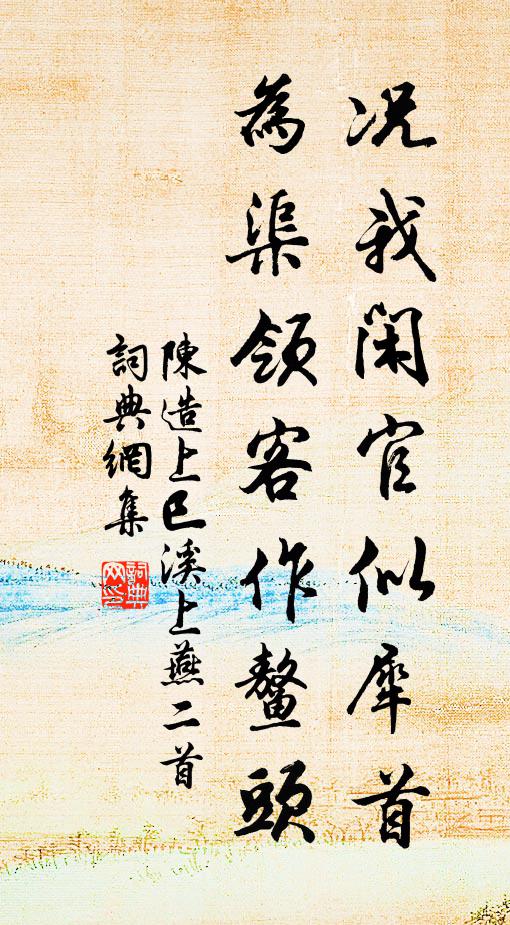 况我閑官似犀首
為渠領客作鼇頭
陳造上巳溪上燕二首
詞典網集
詞典网印